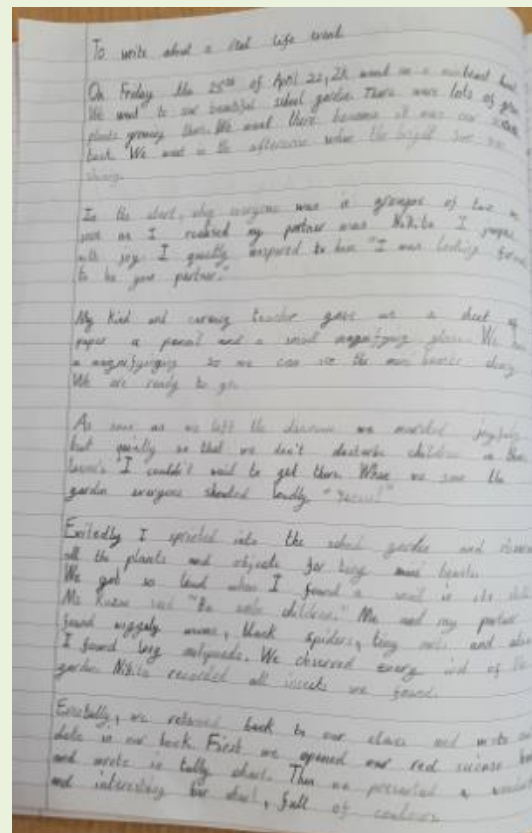 To write about a real life event
On Friday the 25th of April 22, 2R went on a minibeast hunt
We went to our beautiful school garden. There were lots of
plants growing there. We went there because it was our science
task. We went in the afternoon when the bright sun was
shining.
In the start, everyone was in groups of two
soon as I realised my partner was Nikita I
with joy. I quietly wispered to her "I was looking
to be your partner."
My kind and caring teacher gave us a sheet of
paper a pencil and a small magnifying glass. We
a magnifyinging so we can see the mini beasts
We are ready to go.
As soon as we left the classroom we marched joyfully
but quietly so that we don't desturbe children in
I couldn't wait to get there. When we saw the
garden everyone shouted loudly
Exitedly I sprinted into the school garden and
all the plants and objects for tiny mini beasts.
We got so loud when I found a snail in its
Ms said "Be safe children." Me and my partner
found wiggaly worms, black spiders, tiny and also
I found long We observed every of the
garden. Nikita recorded all insects we found.
we returned back to our class and wrote our
date in our book. First we opened our red book
and wrote in tally chart. Then we presented a
and interesting bar chart, full of colours.